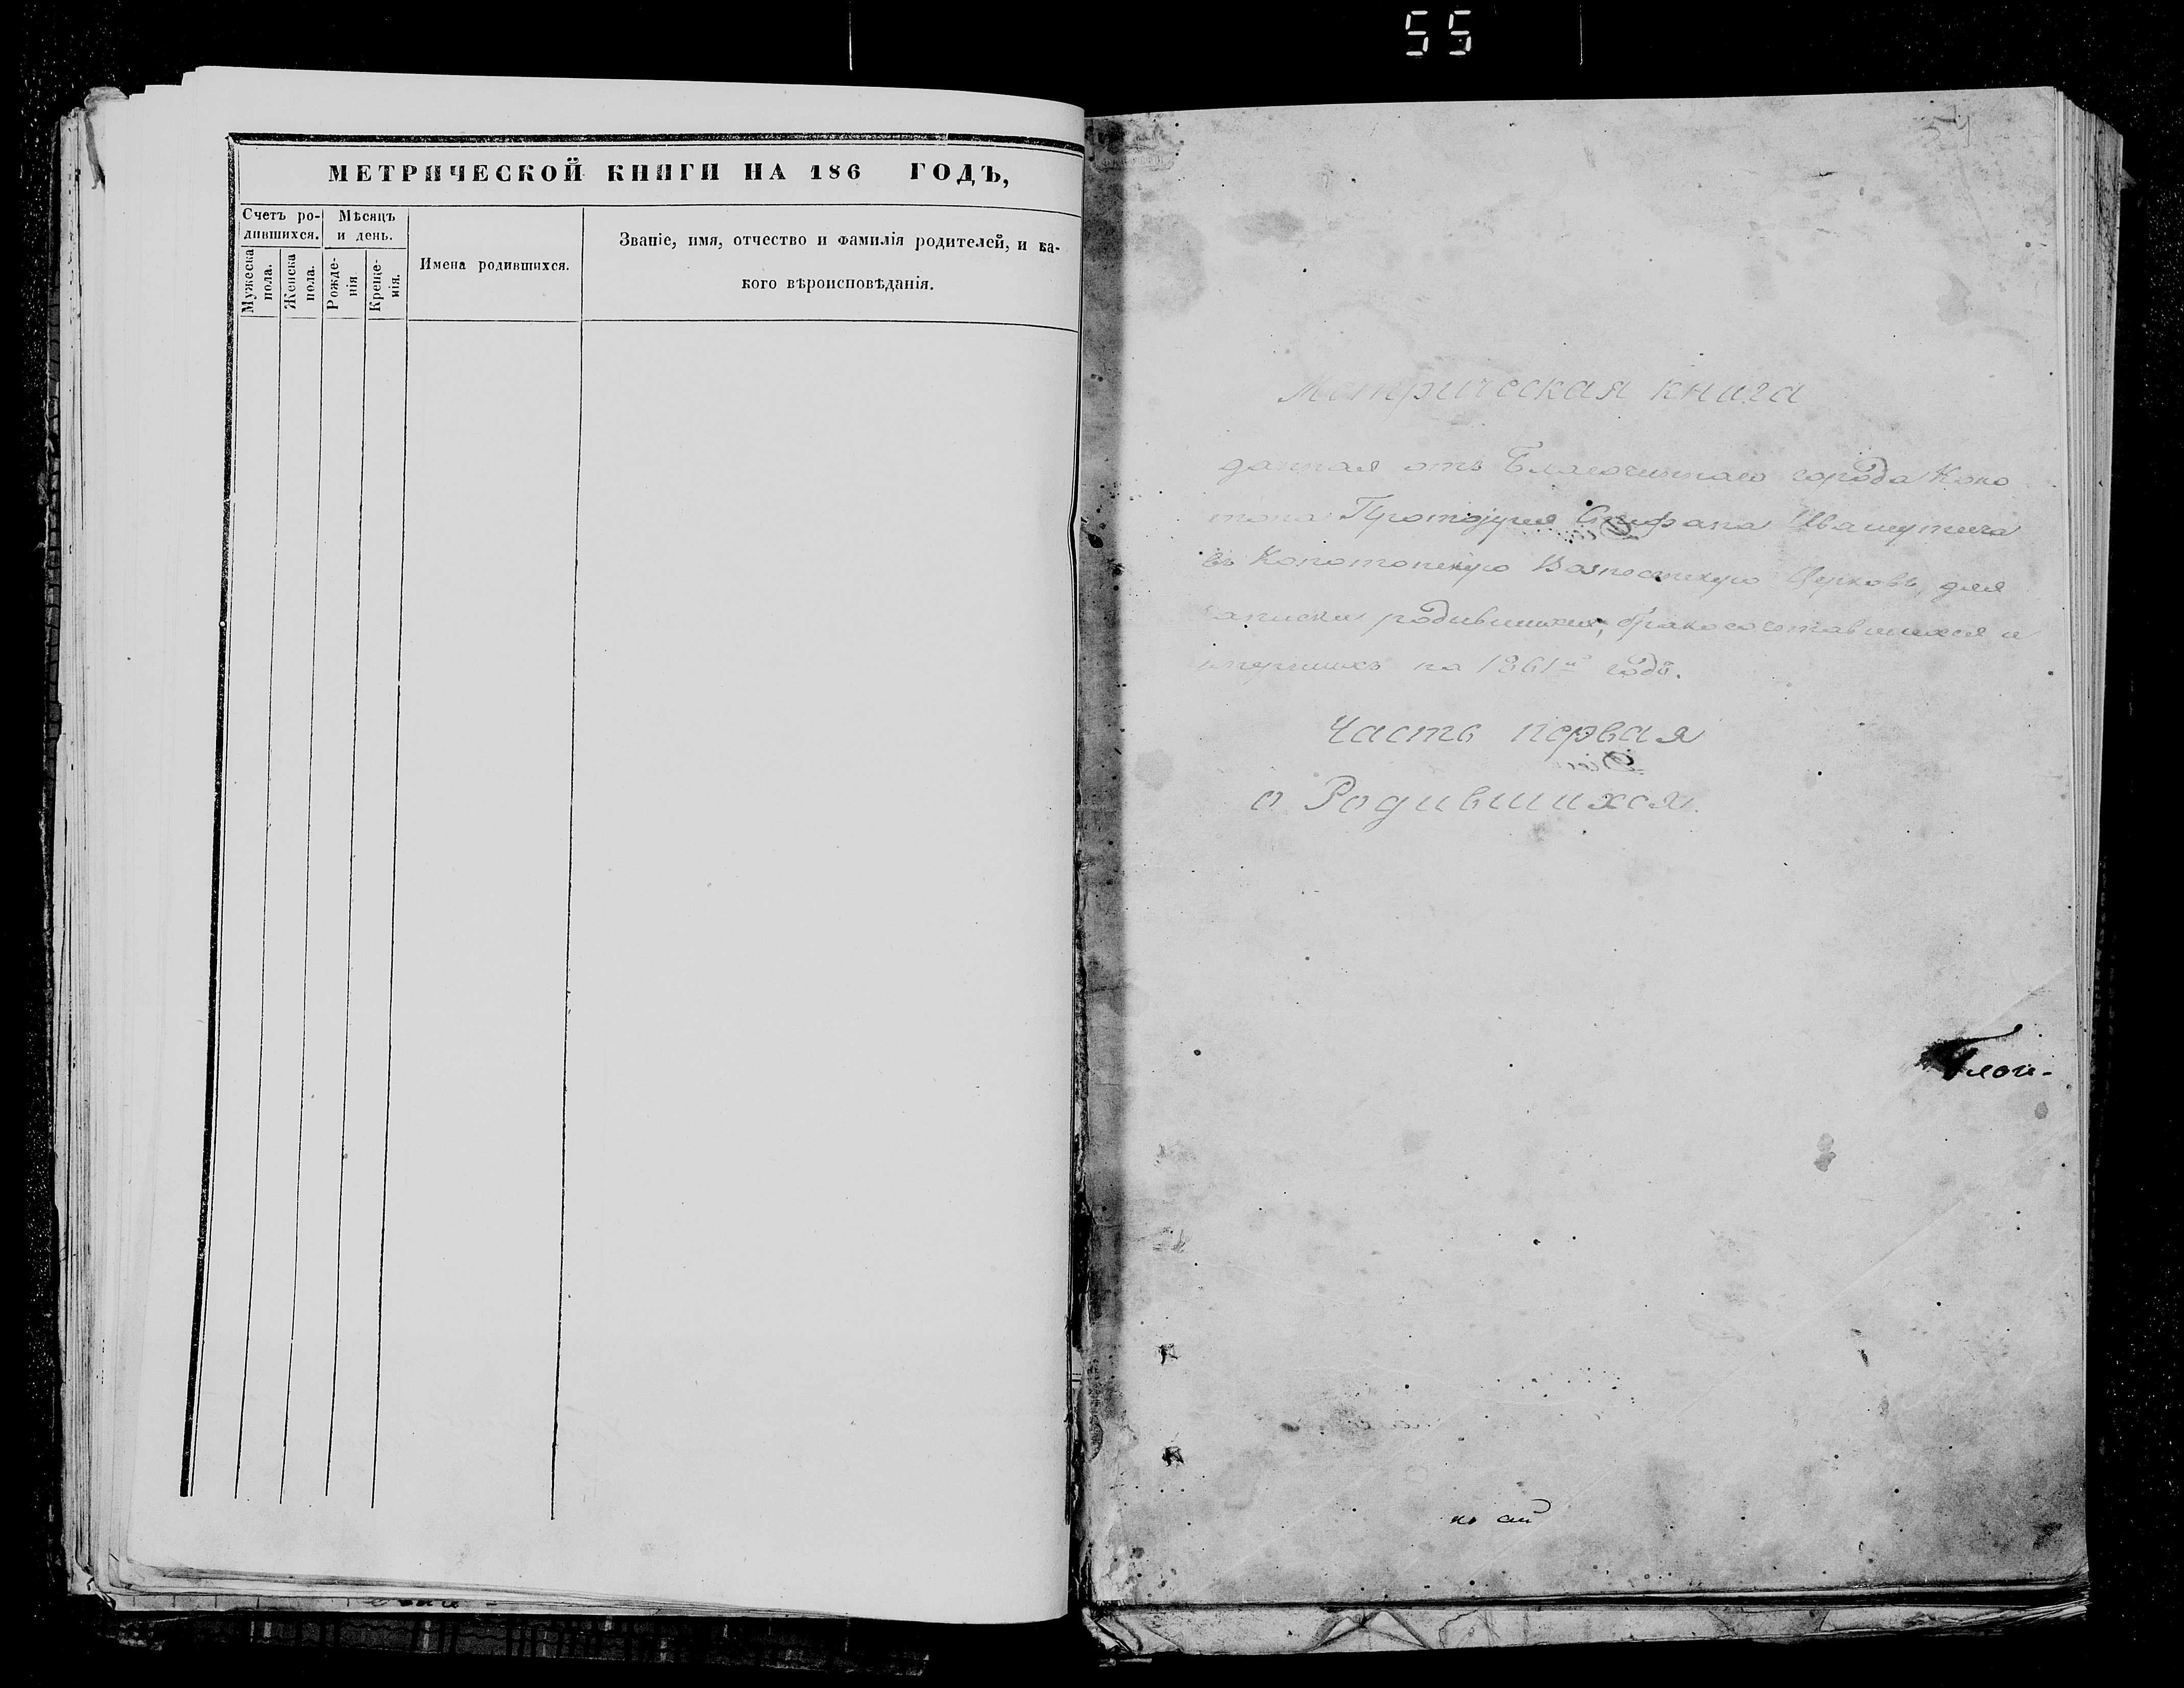 55
МЕТРИЧЕСКОЙ КНИГИ НА 186 ГОДЪ,
Счетъ ро-
дившихся.
Мѣсяцъ
и день.
Мужеска
пола.
Женска
пола.
Рожде-
нія
Креще-
нія.
Имена родившихся.
Званіе, имя, отчество и фамилія родителей, и ка-
кого вѣроисповѣданія.
Метрическая книга
данная отъ Благочиннаго города Коно
топа Протоіерея Стефана Ивашутича
въ Конотопскую Вознесенскую Церковь, для
записки родившихся, бракосочетавшихся и
умершихъ на 1861й годъ.
Часть первая
о Родившихся.